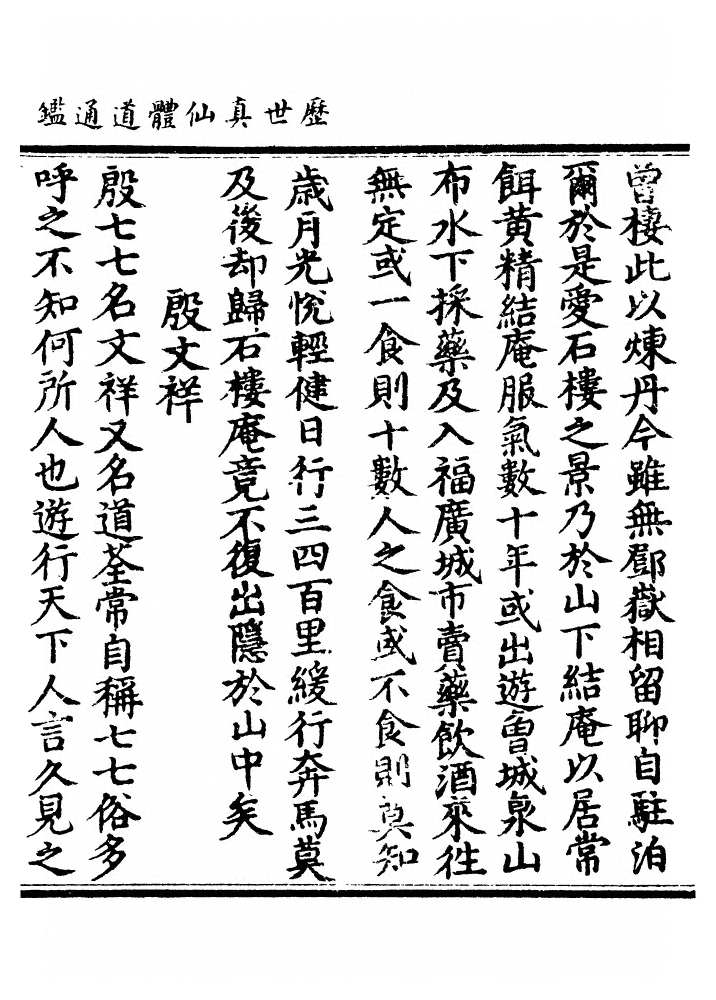 歷世真仙體道通鑑
曾棲此以煉丹今雖無鄧嶽相留聊自駐泊
爾於是愛石樓之景乃於山下結庵以居常
餌黄精結庵服氣數十年或出遊曾城泉山
布水下採藥及入福廣城市賣藥飲酒來往
無定或一食則十數人之食或不食則莫知
歲月光悅輕健日行三四百里緩行奔馬莫
及後却歸石樓庵竟不復出隱於山中矣
殷文祥
殷七七名文祥又名道荃常自稱七七俗多
呼之不知何所人也遊行天下人言久見之